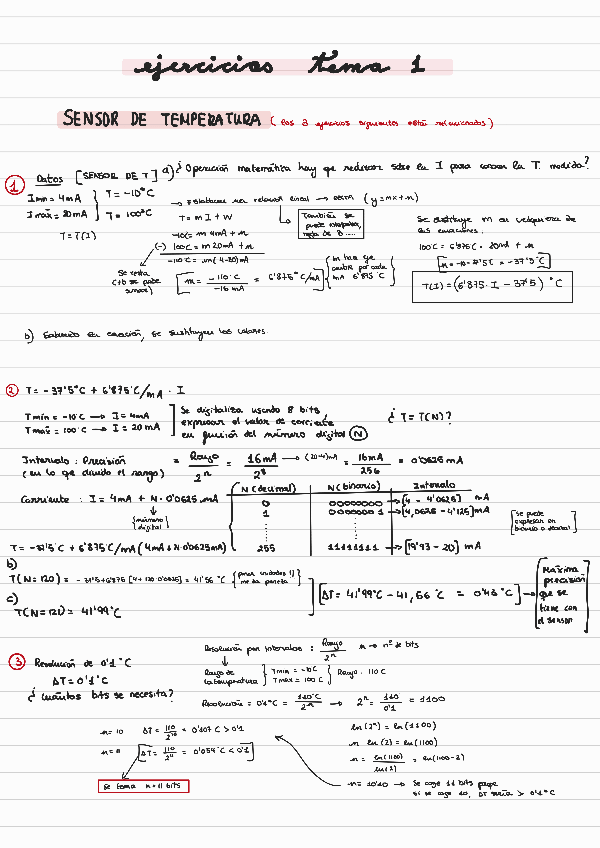 ejercicios tema 1
SENSOR DE TEMPERATURA (los 3 ejercicios siguientes están relacionados)
1 Datos [SENSOR DE T] a) ¿Operación matemática hay que realizar sobre la I para conocer la T medida?
Imin = 4mA T = -10°C
Imáx = 20mA T = 100°C
T = T(I)
→ Establecer una relación lineal → recta (y = mx + n)
T = m I + n
-10 = m 4mA + n
(-) 100°C = m 20mA + n
-110°C = m(4-20)mA
También se puede interpolar, regla de 3 .....
Se resta (+ b se puede sumar)
m = -110°C / -16 mA = 6'875 °C/mA
m hay que
por cada mA 6'875°C
Se sustituye m en cualquiera de las ecuaciones.
100°C = 6'875°C · 20mA + n
n = -10 - 27'5°C = -37'5°C
T(I) = (6'875 · I - 37'5) °C
b) Sabiendo su ecuación, se sustituyen los valores.
2 T = -37'5°C + 6'875°C/mA · I
Tmín = -10°C → I = 4mA
Tmáx = 100°C → I = 20 mA
Se digitaliza usando 8 bits, expresar el valor de corriente en función del número digital (N)
¿ T = T(N)?
Intervalo: Precisión (en lo que divido el rango) = Rango / 2ⁿ = 16mA / 2⁸ → (20-4)mA = 16mA / 256 = 0'0625 mA
Corriente : I = 4mA + N · 0'0625 mA
(número digital)
N (decimal) N (binario) Intervalo
0 00000000 → [4 - 4'0625] mA
1 00000001 → [4,0625 - 4'125] mA
255 11111111 → [19'93 - 20] mA
[se puede expresar en binario o decimal]
T = -37'5°C + 6'875°C/mA (4mA + N·0'0625mA)
b)
T(N=120) = -37'5 + 6'875 [4 + 120·0'0625] = 41'56 °C
c)
T(N=121) = 41'99°C
ΔT = 41'99°C - 41,56 °C = 0'43°C →
Máxima precisión que se tiene con el sensor
3 Resolución de 0'1 °C
ΔT = 0'1°C
¿ Cuántos bits se necesita?
Resolución por intervalos : Rango / 2ⁿ n → nº de bits
Rango de la temperatura Tmin = -10°C Tmax = 100°C Rango: 110°C
Resolución = 0'1°C = 110°C / 2ⁿ → 2ⁿ = 110 / 0'1 = 1100
ln(2ⁿ) = ln(1100)
n ln(2) = ln(1100)
n = ln(1100) / ln(2) = ln(1100-2)
n = 10'10 → Se coge 11 bits porque si se coge 10, ΔT sería > 0'1°C
n = 10 ΔT = 110 / 2¹⁰ = 0'107°C > 0'1
n = 11 ΔT = 110 / 2¹¹ = 0'054°C < 0'1
Se toma n = 11 bits